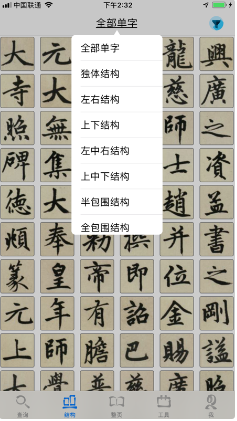 中国联通
下午2:32
全部单字
大 元 龍 興
全部单字
寺 大 慈 廣
独体结构
左右结构
照 無 師 之
上下结构
碑 集 士 資
左中右结构
上中下结构
德 大 趙 孟
半包围结构
頫 奉 勑 撰 并 書
全包围结构
篆 皇 帝 即 位 之
元 年 有 詔 金 剛
上 師 膽 巴 賜 謚
大 學 普 慈 廣 照
结构
工具